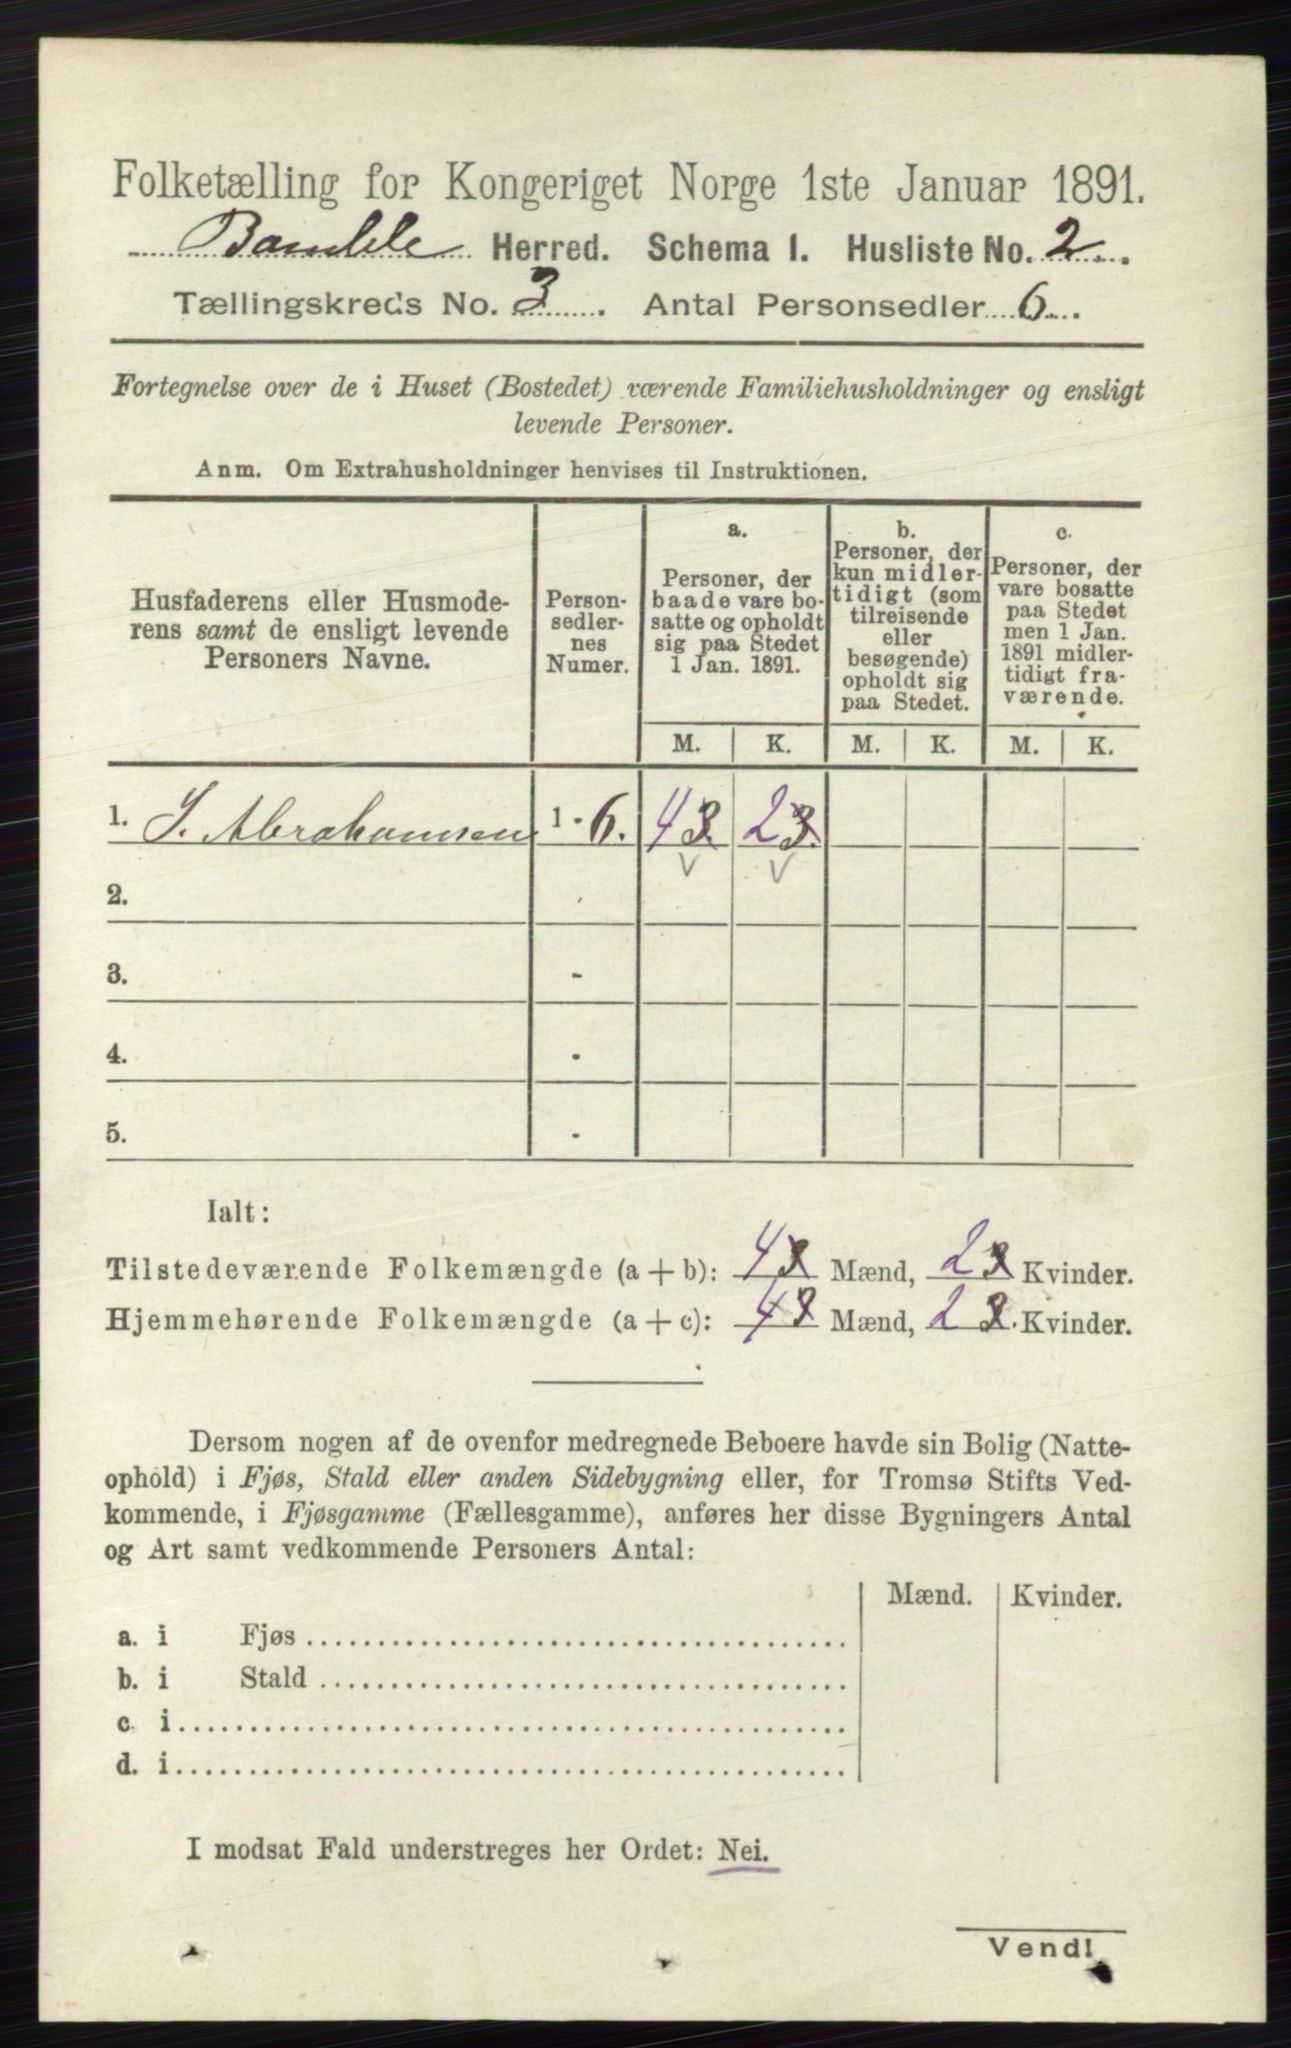 Folketælling for Kongeriget Norge 1ste Januar 1891.
Bamble Herred. Schema I. Husliste No. 2
Tællingskreds No. 3. Antal Personsedler 6.
Fortegnelse over de i Huset (Bostedet) værende Familiehusholdninger og ensligt
levende Personer.
Anm. Om Extrahusholdninger henvises til Instruktionen.
Husfaderens eller Husmode-
rens samt de ensligt levende
Personers Navne.
Person-
sedler-
nes
Numer.
a.
Personer, der
baade vare bo-
satte og opholdt
sig paa Stedet
1 Jan. 1891.
b.
Personer, der
kun midler-
tidigt (som
tilreisende
eller
besøgende)
opholdt sig
paa Stedet.
c.
Personer, der
vare bosatte
paa Stedet
men 1 Jan.
1891 midler-
tidigt fra-
værende.
M. K. M. K. M. K.
1. S. Abrahamsen 1 - 6. 4 3. 2 3.
2.
3. -
4. -
5. -
Ialt:
Tilstedeværende Folkemængde (a + b): 4 3 Mænd, 2 3 Kvinder.
Hjemmehørende Folkemængde (a + c): 4 3 Mænd, 2 3. Kvinder.
Dersom nogen af de ovenfor medregnede Beboere havde sin Bolig (Natte-
ophold) i Fjøs, Stald eller anden Sidebygning eller, for Tromsø Stifts Ved-
kommende, i Fjøsgamme (Fællesgamme), anføres her disse Bygningers Antal
og Art samt vedkommende Personers Antal:
Mænd. Kvinder.
a. i Fjøs
b. i Stald
c. i
d. i
I modsat Fald understreges her Ordet: Nei.
Vend!